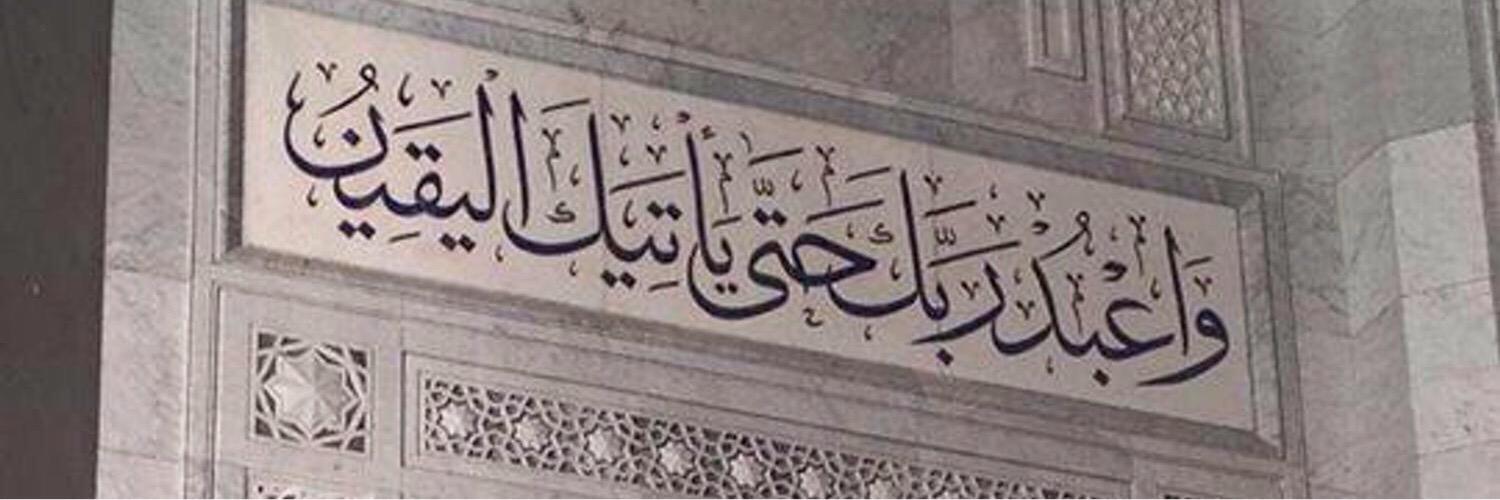 وَاعْبُدْ رَبَّكَ حَتَّى يَأْتِيَكَ الْيَقِينُ